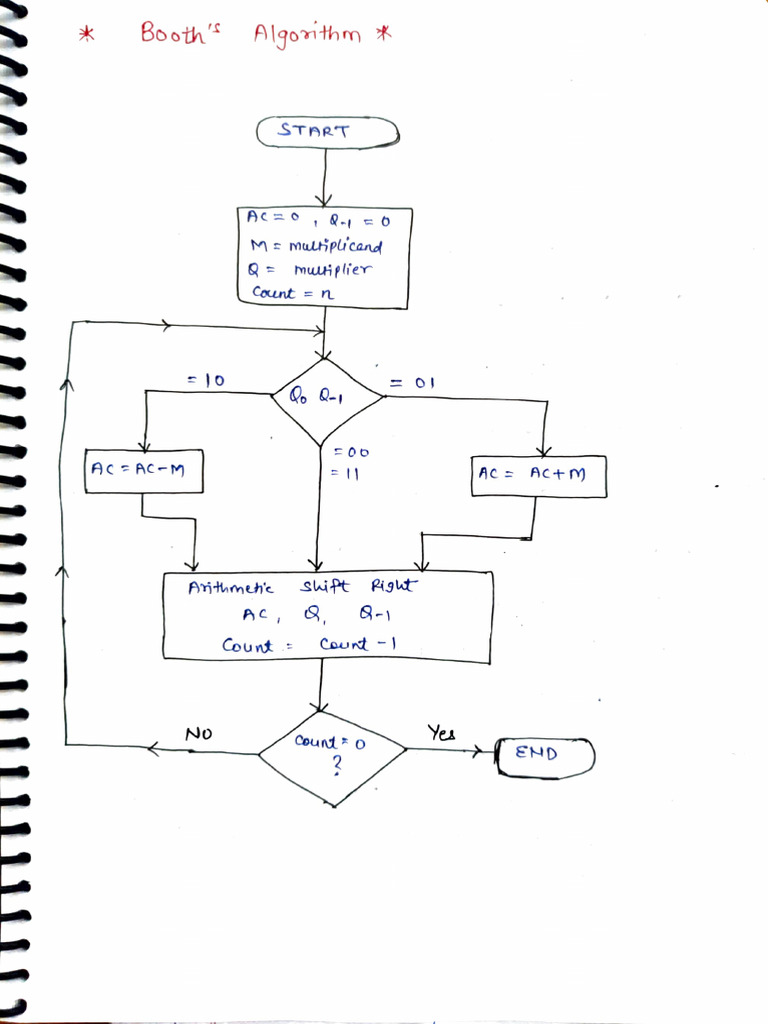 * Booth's Algorithm *
START
AC = 0 , Q-1 = 0
M = multiplicand
Q = multiplier
Count = n
= 10
Q0 Q-1
= 01
= 00
= 11
AC = AC - M
AC = AC + M
Arithmetic Shift Right
AC, Q, Q-1
Count = Count - 1
NO
Count = 0
?
Yes
END